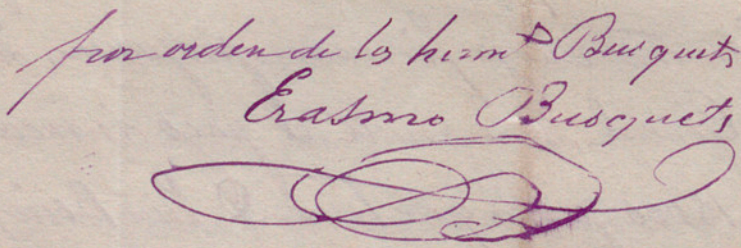 por orden de los herm.s Busquets
Erasmo Busquets